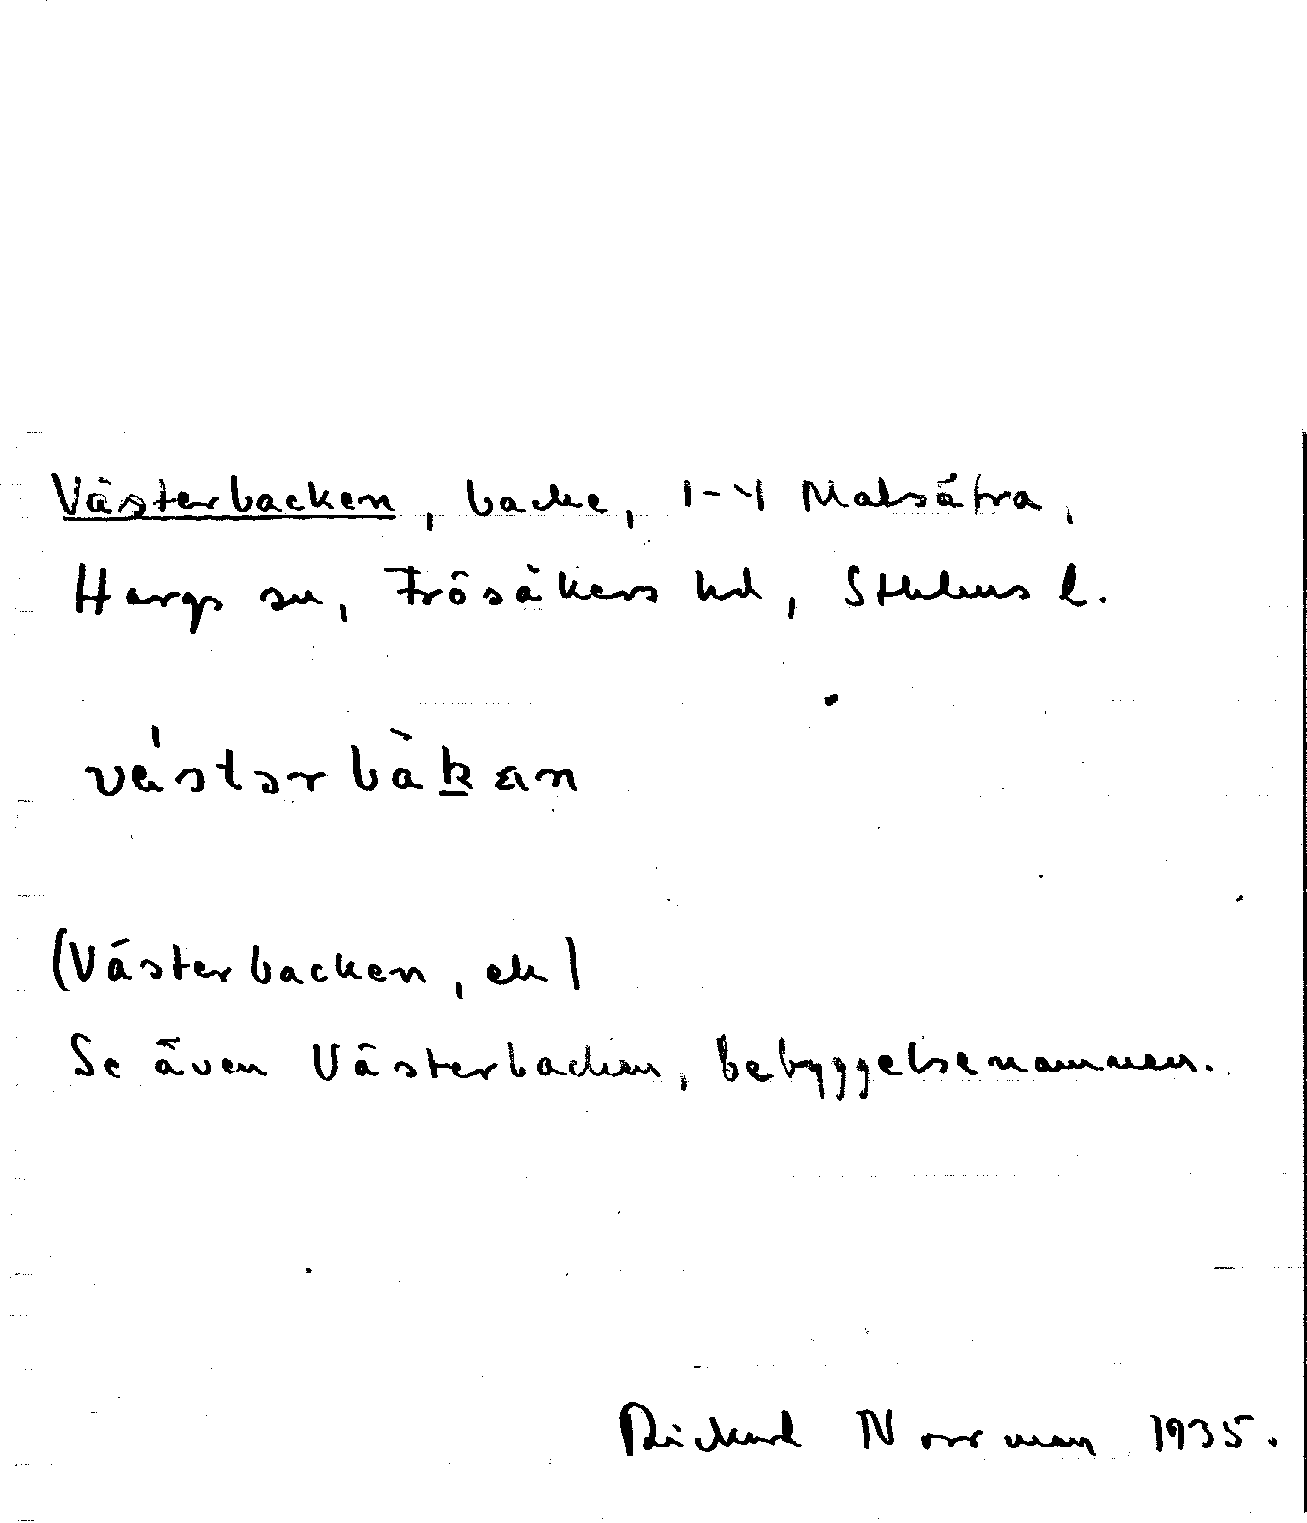 Västerbacken, backe, 1-4 Malsätra,
Hargs sn, Frösåkers hd, Sthlms l.
västərbàkan
(Västerbacken, ek)
Se även Västerbacken, bebyggelsenamnen.
Rickard Norrman 1935.